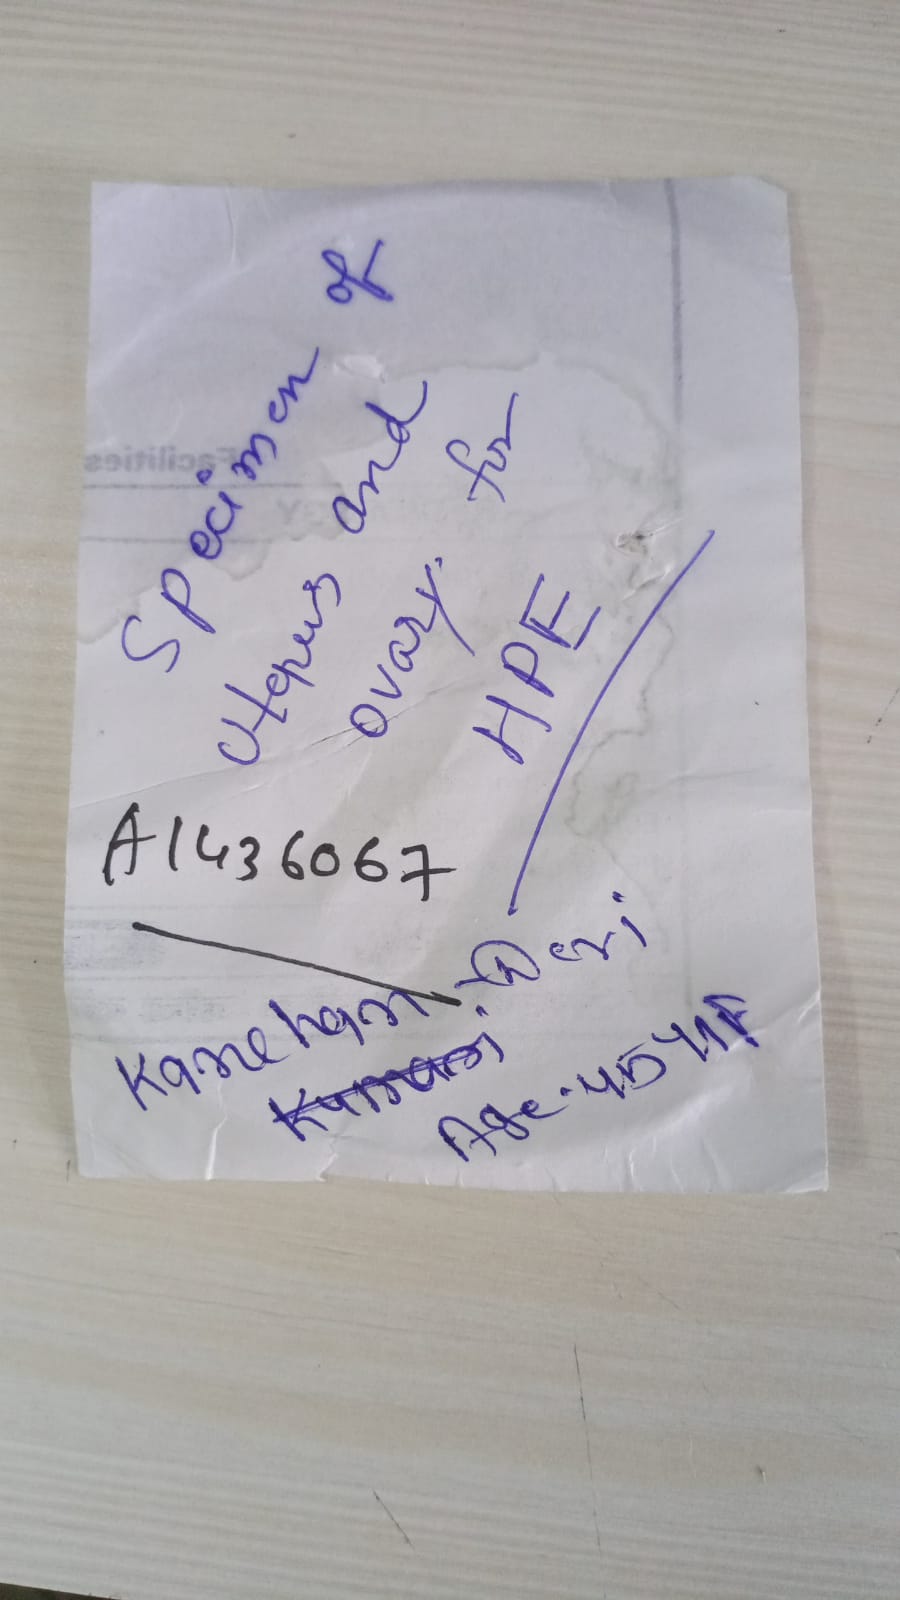 Specimen of
uterus and
ovary. for
HPE
A1436067
Kanchan Devi
Kumari
Age. 45Y/F
Facilities